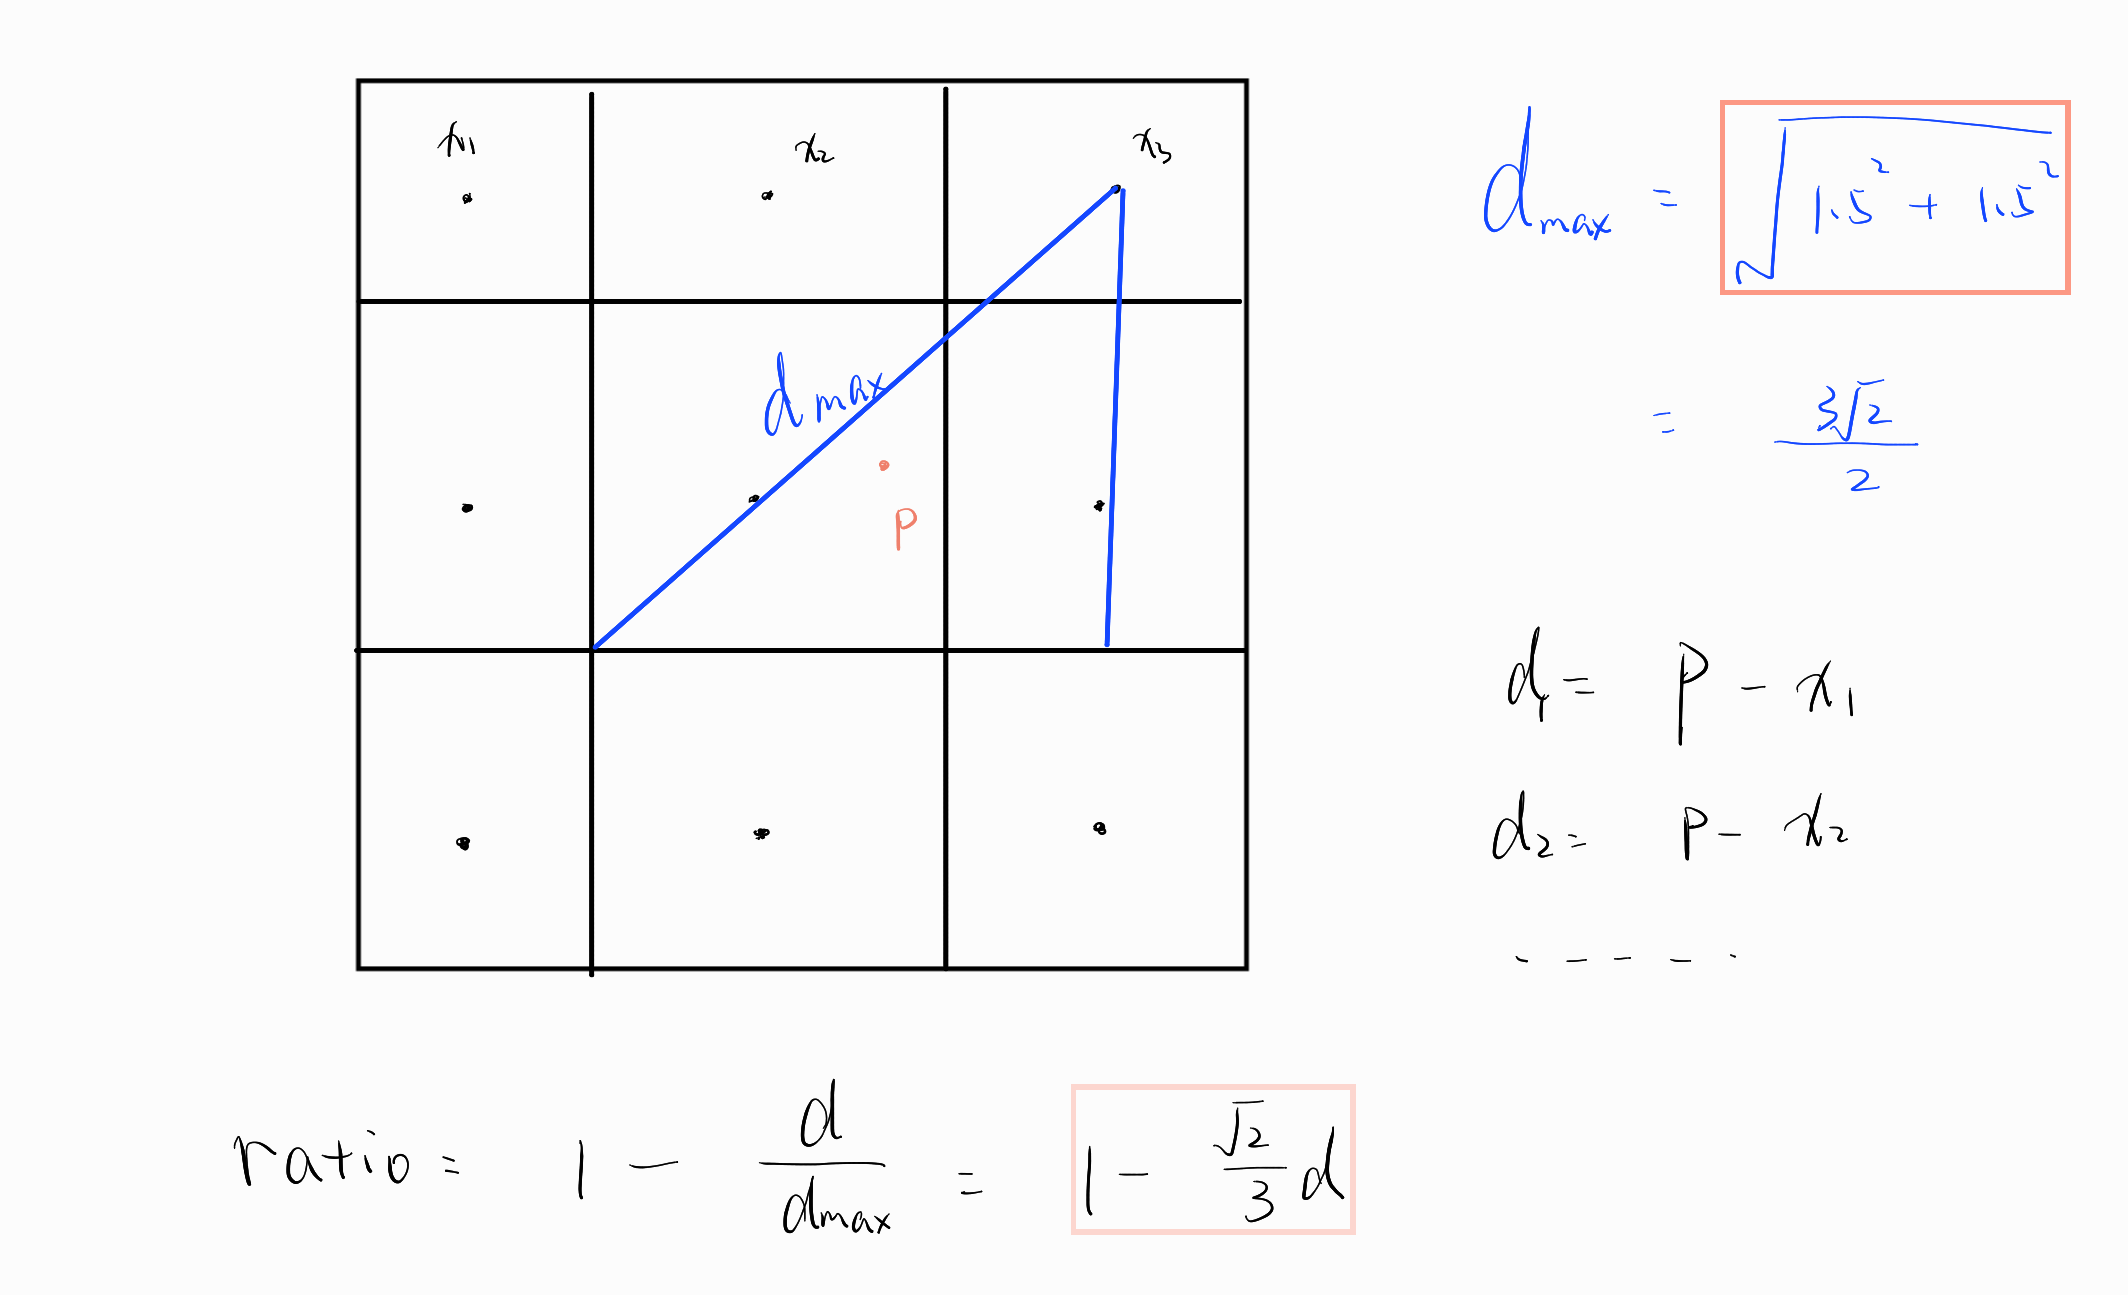 x₁ x₂ x₃
dmax
p
dmax = √(1.5² + 1.5²)
= 3√2 / 2
d₁ = p - x₁
d₂ = p - x₂
- - - - -
ratio = 1 - d / dmax = 1 - √2 / 3 d